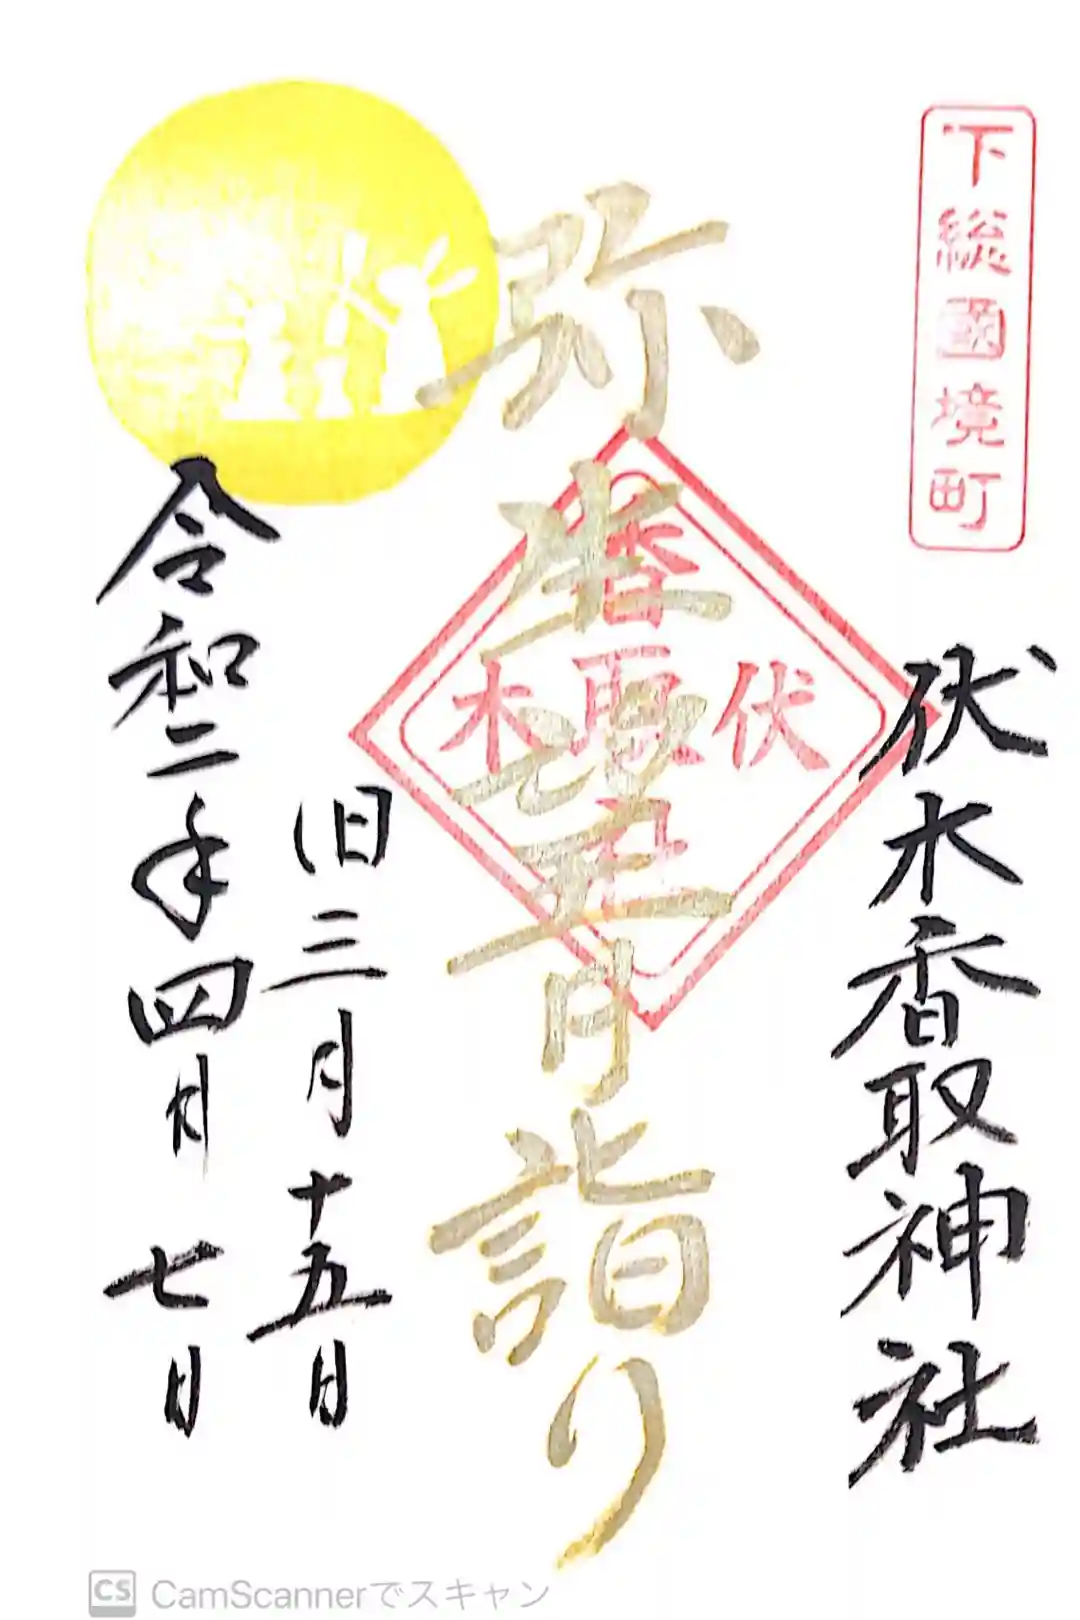 下総國境町
伏木香取神社
弥生満月詣り
伏木
香取
旧三月十五日
令和二年四月七日
CS CamScannerでスキャン